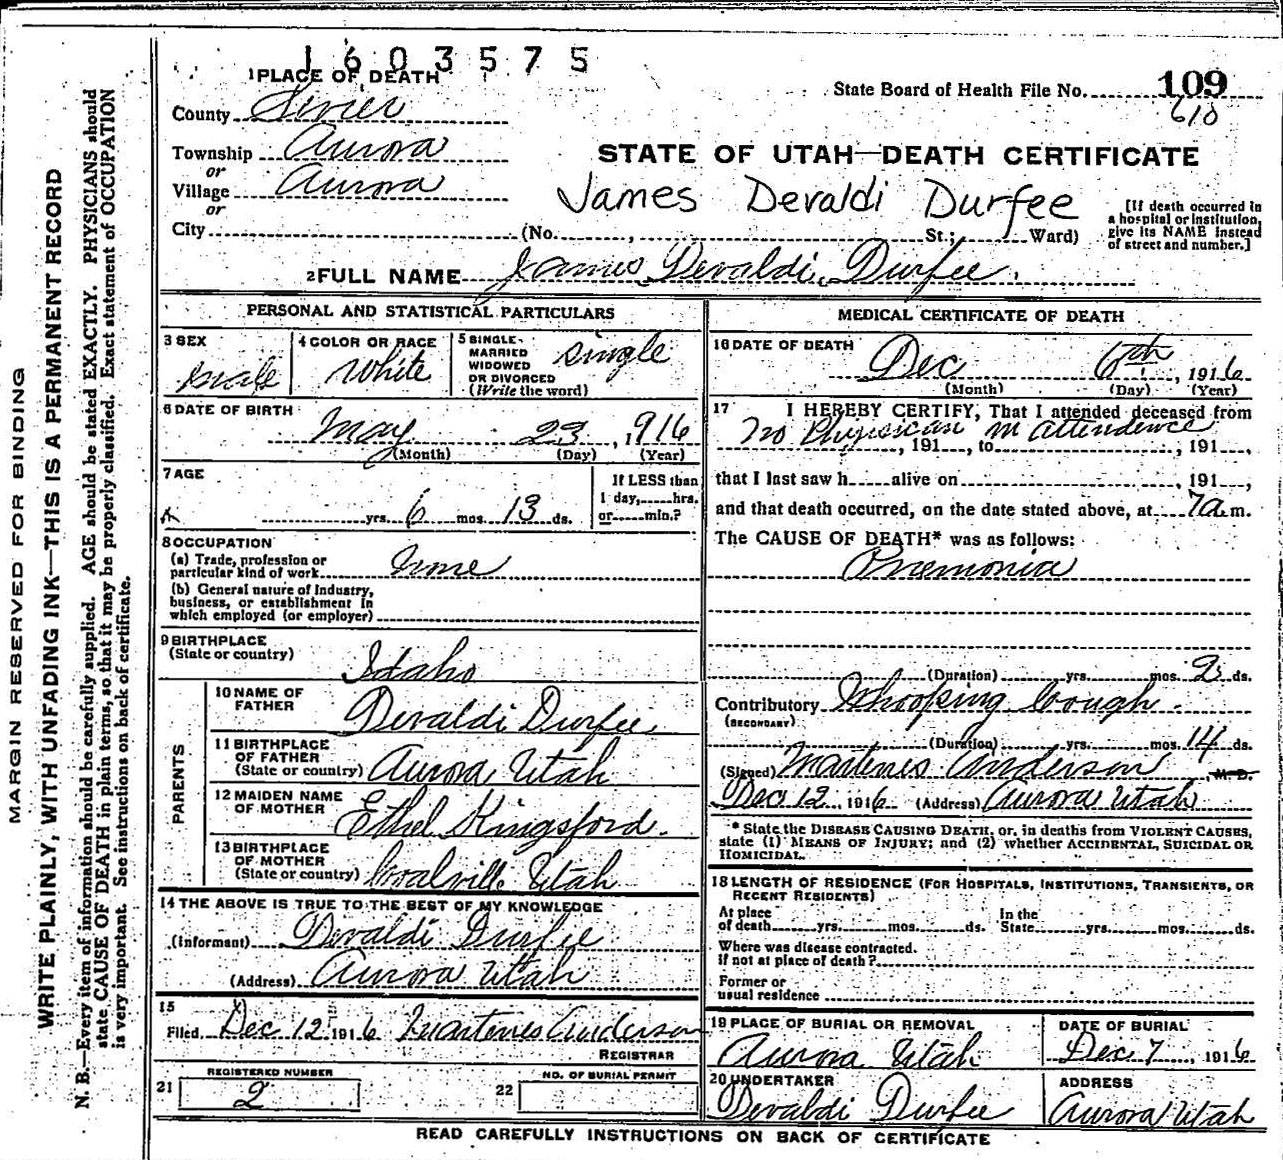 1603575
1 PLACE OF DEATH
State Board of Health File No. 109
610
County Sevier
Township Aurora
or
Village Aurora
or
City (No. , St.; Ward)
STATE OF UTAH—DEATH CERTIFICATE
James Devaldi Durfee
[If death occurred in
a hospital or institution,
give its NAME instead
of street and number.]
2 FULL NAME James Devaldi Durfee.
PERSONAL AND STATISTICAL PARTICULARS
3 SEX
male
4 COLOR OR RACE
White
5 SINGLE,
MARRIED
WIDOWED
OR DIVORCED
(Write the word)
single
6 DATE OF BIRTH
May 23, 1916
(Month) (Day) (Year)
7 AGE
yrs. 6 mos. 13 ds.
If LESS than
1 day, hrs.
or min.?
8 OCCUPATION
(a) Trade, profession or
particular kind of work None
(b) General nature of Industry,
business, or establishment in
which employed (or employer)
9 BIRTHPLACE
(State or country)
Idaho
PARENTS
10 NAME OF
FATHER
Devaldi Durfee
11 BIRTHPLACE
OF FATHER
(State or country) Aurora Utah
12 MAIDEN NAME
OF MOTHER
Ethel Kingsford.
13 BIRTHPLACE
OF MOTHER
(State or country) Coalville Utah
14 THE ABOVE IS TRUE TO THE BEST OF MY KNOWLEDGE
(Informant) Devaldi Durfee
(Address) Aurora Utah
15
Filed Dec 12 1916 Martenes Anderson
REGISTRAR
REGISTERED NUMBER
21 2
NO. OF BURIAL PERMIT
22
MEDICAL CERTIFICATE OF DEATH
16 DATE OF DEATH
Dec 6th, 1916
(Month) (Day) (Year)
17 I HEREBY CERTIFY, That I attended deceased from
No Physician in Attendence
, 191 , to , 191 ,
that I last saw h alive on , 191 ,
and that death occurred, on the date stated above, at 7 a m.
The CAUSE OF DEATH* was as follows:
Pnemonia
(Duration) yrs. mos. 2 ds.
Contributory Whooping Cough.
(SECONDARY)
(Duration) yrs. mos. 14 ds.
(Signed) Martenes Anderson M. D.
Dec 12 1916 (Address) Aurora Utah
* State the DISEASE CAUSING DEATH, or, in deaths from VIOLENT CAUSES,
state (1) MEANS OF INJURY; and (2) whether ACCIDENTAL, SUICIDAL OR
HOMICIDAL.
18 LENGTH OF RESIDENCE (FOR HOSPITALS, INSTITUTIONS, TRANSIENTS, OR
RECENT RESIDENTS)
At place
of death yrs. mos. ds.
In the
State yrs. mos. ds.
Where was disease contracted.
if not at place of death?
Former or
usual residence
19 PLACE OF BURIAL OR REMOVAL
Aurora Utah
DATE OF BURIAL
Dec 7, 1916
20 UNDERTAKER
Devaldi Durfee
ADDRESS
Aurora Utah
READ CAREFULLY INSTRUCTIONS ON BACK OF CERTIFICATE
MARGIN RESERVED FOR BINDING
WRITE PLAINLY, WITH UNFADING INK—THIS IS A PERMANENT RECORD
N. B.—Every item of information should be carefully supplied. AGE should be stated EXACTLY. PHYSICIANS should
state CAUSE OF DEATH in plain terms, so that it may be properly classified. Exact statement of OCCUPATION
is very important. See instructions on back of certificate.